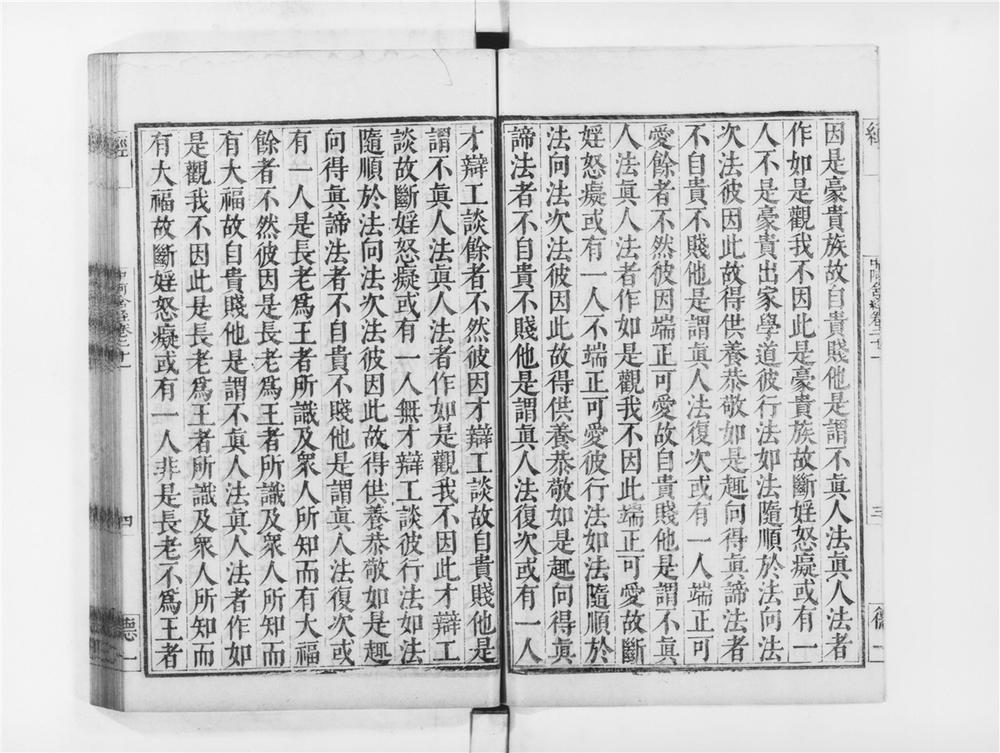 因是豪貴族故自貴賤他是謂不眞人法眞人法者
作如是觀我不因此是豪貴族故斷婬怒癡或有一
人不是豪貴出家學道彼行法如法隨順於法向法
次法彼因此故得供養恭敬如是趣向得眞諦法者
不自貴不賤他是謂眞人法復次或有一人端正可
愛餘者不然彼因端正可愛故自貴賤他是謂不眞
人法眞人法者作如是觀我不因此端正可愛故斷
婬怒癡或有一人不端正可愛彼行法如法隨順於
法向法次法彼因此故得供養恭敬如是趣向得眞
諦法者不自貴不賤他是謂眞人法復次或有一人
才辯工談餘者不然彼因才辯工談故自貴賤他是
謂不眞人法眞人法者作如是觀我不因此才辯工
談故斷婬怒癡或有一人無才辯工談彼行法如法
隨順於法向法次法彼因此故得供養恭敬如是趣
向得眞諦法者不自貴不賤他是謂眞人法復次或
有一人是長老爲王者所識及衆人所知而有大福
餘者不然彼因是長老爲王者所識及衆人所知而
有大福故自貴賤他是謂不眞人法眞人法者作如
是觀我不因此是長老爲王者所識及衆人所知而
有大福故斷婬怒癡或有一人非是長老不爲王者
經
四
德一